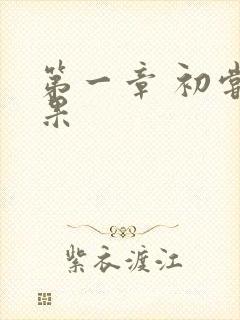 第一章 初尝
果
紫衣渡江